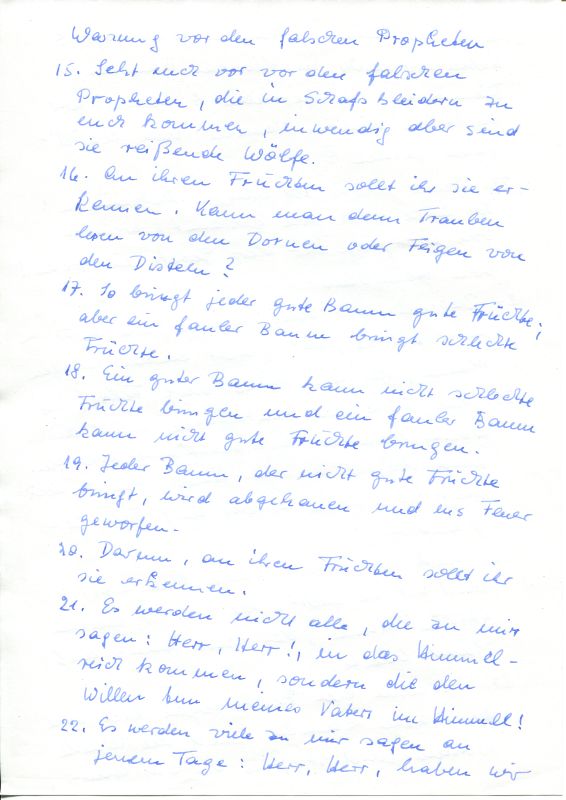 Warnung vor den falschen Propheten
15. Seht euch vor vor den falschen
Propheten, die in Schafskleidern zu
euch kommen, inwendig aber sind
sie reißende Wölfe.
16. An ihren Früchten sollt ihr sie er-
kennen. Kann man denn Trauben
lesen von den Dornen oder Feigen von
den Disteln?
17. So bringt jeder gute Baum gute Früchte;
aber ein fauler Baum bringt schlechte
Früchte.
18. Ein guter Baum kann nicht schlechte
Früchte bringen und ein fauler Baum
kann nicht gute Früchte bringen.
19. Jeder Baum, der nicht gute Früchte
bringt, wird abgehauen und ins Feuer
geworfen.
20. Darum, an ihren Früchten sollt ihr
sie erkennen.
21. Es werden nicht alle, die zu mir
sagen: Herr, Herr!, in das Himmel-
reich kommen, sondern die den
Willen tun meines Vaters im Himmel!
22. Es werden viele zu mir sagen an
jenem Tage: Herr, Herr, haben wir